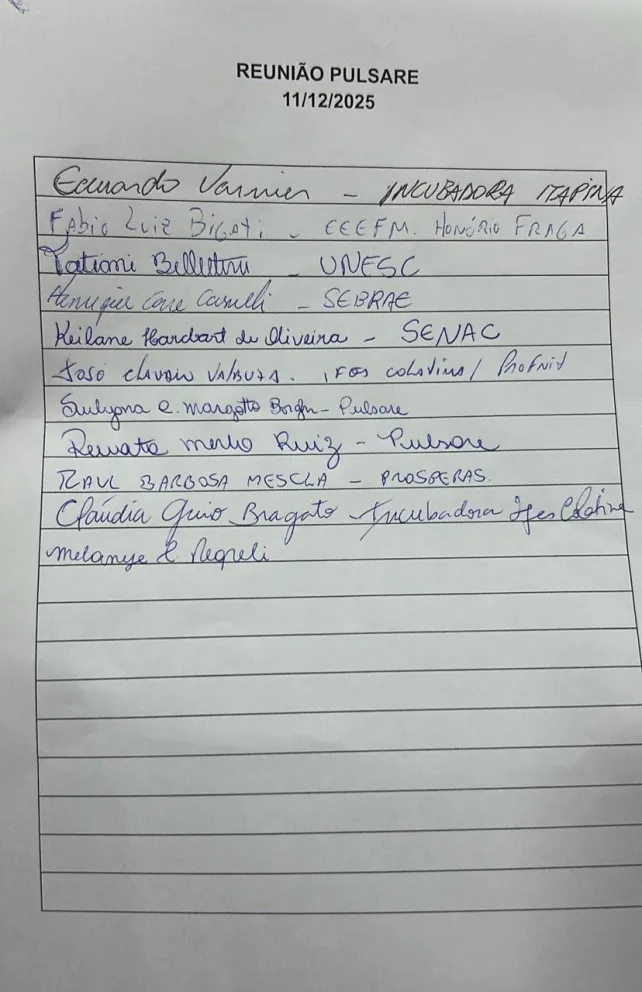 REUNIÃO PULSARE
11/12/2025
Eduardo Varnier - INCUBADORA ITAPINA
Fábio Luiz Bigati - CEEFM. HONÓRIO FRAGA
Tatiani - UNESC
Henrique - SEBRAE
Keilane Hardbart de Oliveira - SENAC
José - IFES COLATINA / PROFNIT
R. Margotto - Pulsare
Renata Merlo Ruiz - Pulsare
RAUL BARBOSA MESCLA - PROSPERAS.
Cláudia Guio Bragato - Incubadora Ifes Colatina
Melanye R. Negreli